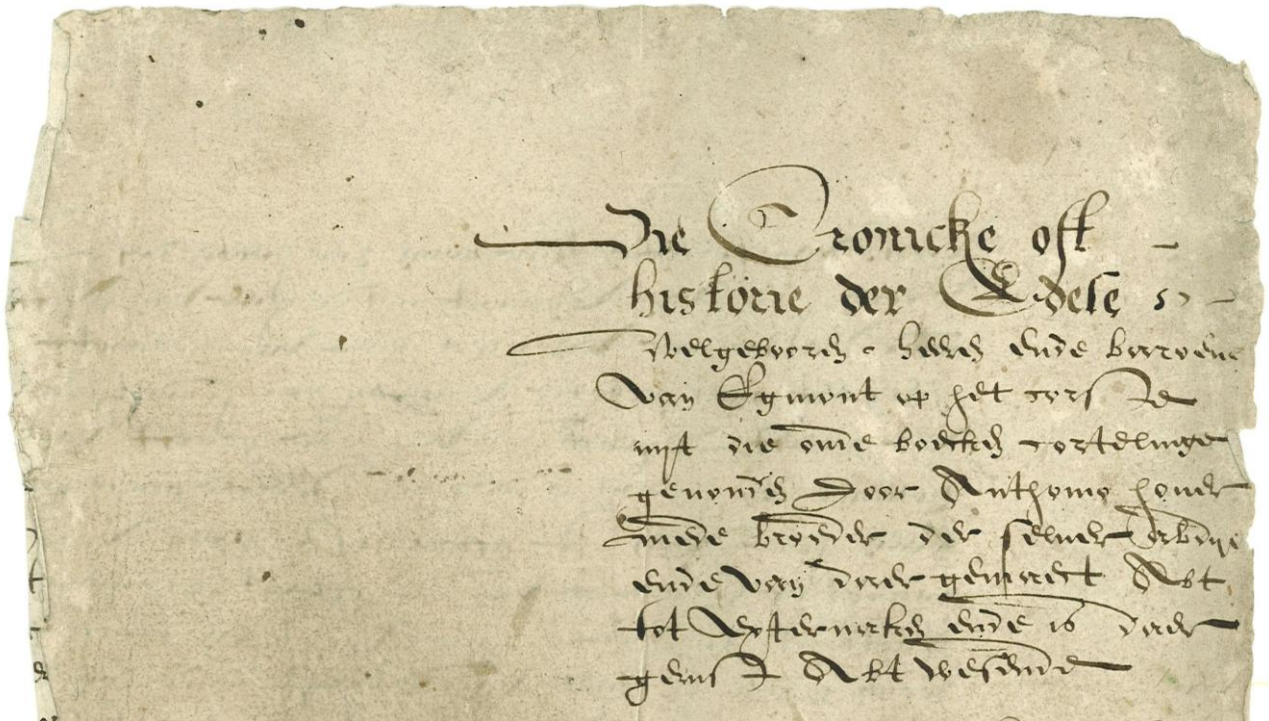 Die Cronicke oft
historie der Edele
welgeboren heren ende baroene
van Egmont op het cors
wt die oude boecken cortelinge
genomen Door Anthonio hover
mede broeder der selver abdije
ende van daer gemaect Abt
tot Epternaken ende is daer
Abt wesende